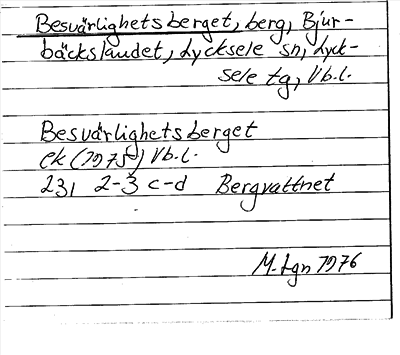 Besvärlighetsberget, berg, Bjur-
bäckslandet, Lycksele sn, Lyck-
sele tg, Vb.l.
Besvärlighetsberget
ek (1975) Vb.l.
23, 2-3 c-d Bergvattnet
M. Lgn 1976